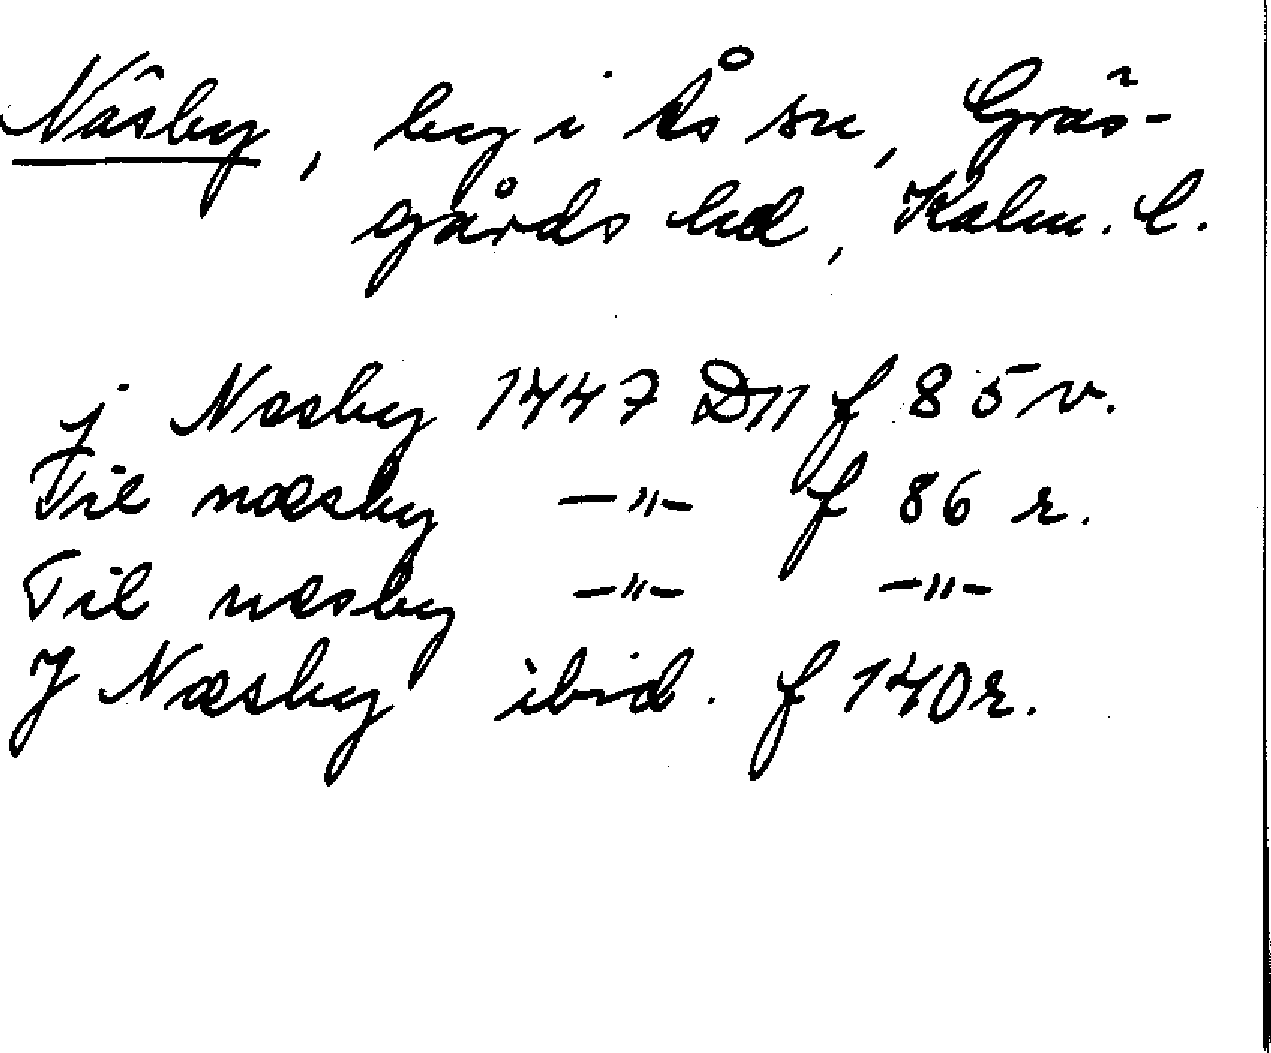 Näsby, by i Ås sn, Gräs-
gårds hd, Kalm. l.
j Næsby 1447 D11 f 85 v.
Til næsby —"— f 86 r.
Til næsby —"— —"—
J Næsby ibid. f 140 r.